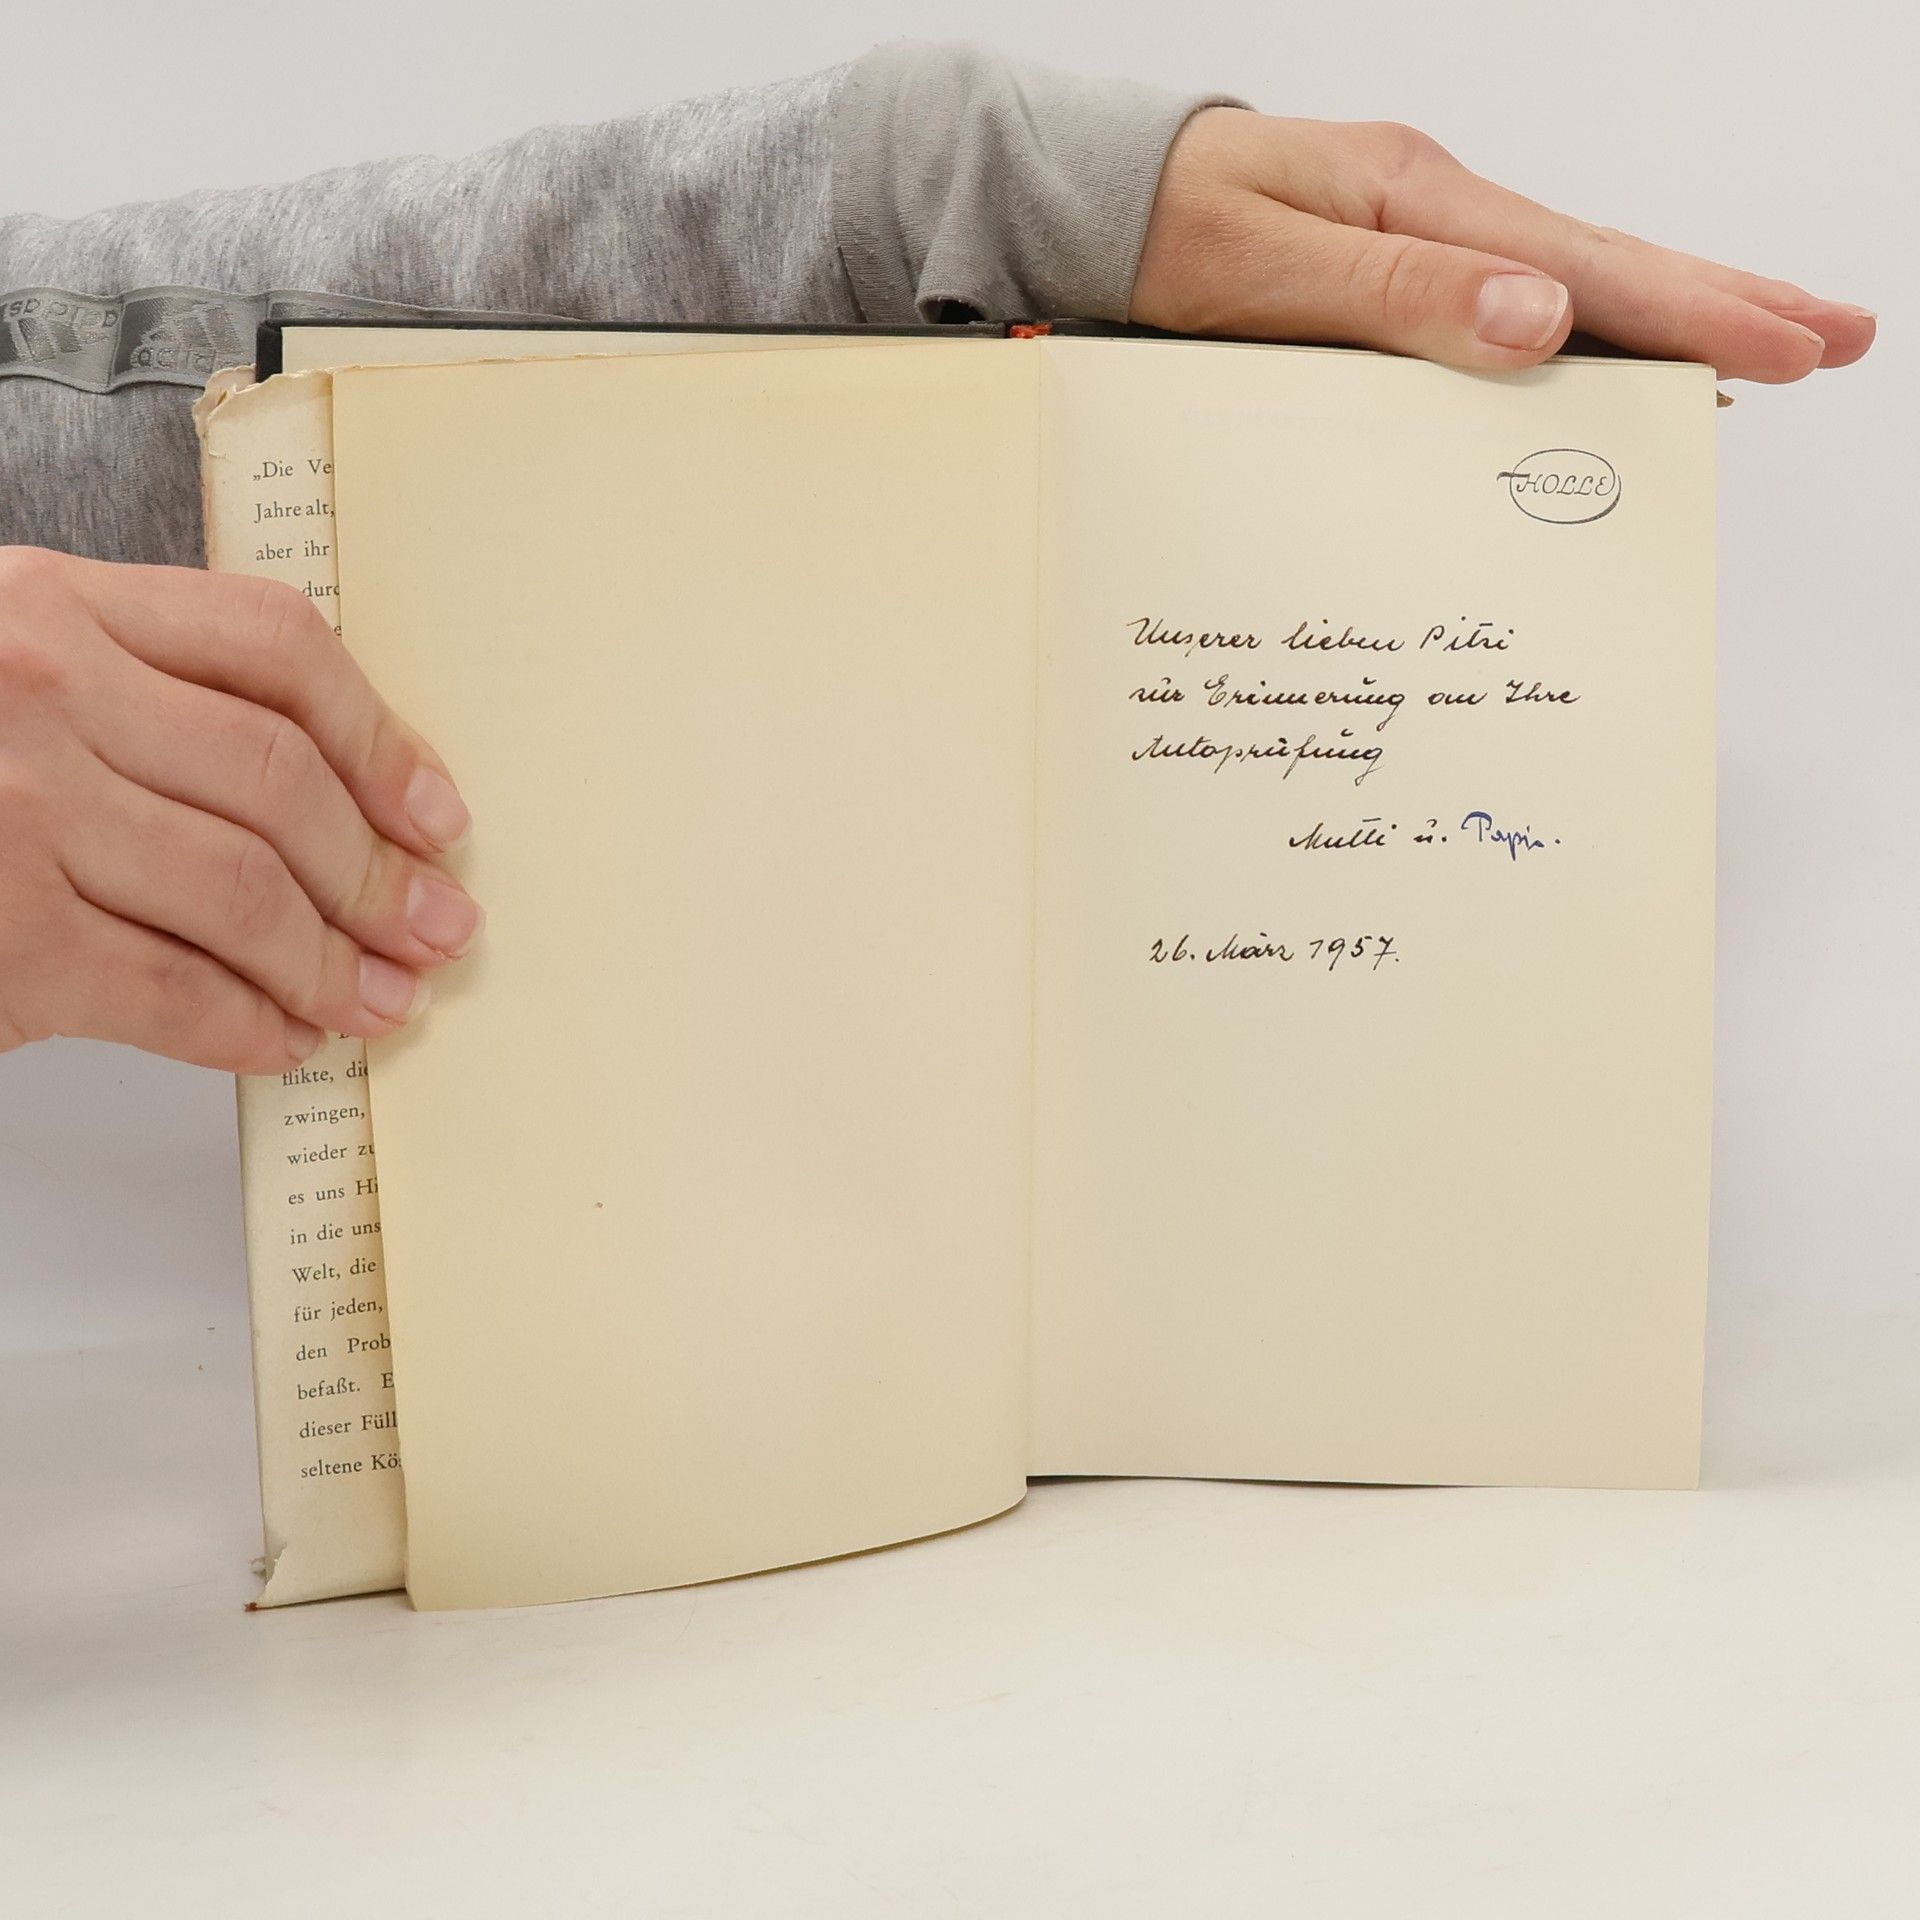 adidas
„Die Ve
Jahre alt,
aber ihr
durc
e
flikte, die
zwingen,
wieder zu
es uns Hi
in die uns
Welt, die
für jeden,
den Prob
befaßt. E
dieser Füll
seltene Kös
HOLLE
Unserer lieben Pitzi
zur Erinnerung an Ihre
Autoprüfung
Mutti u. Papi.
26. März 1957.